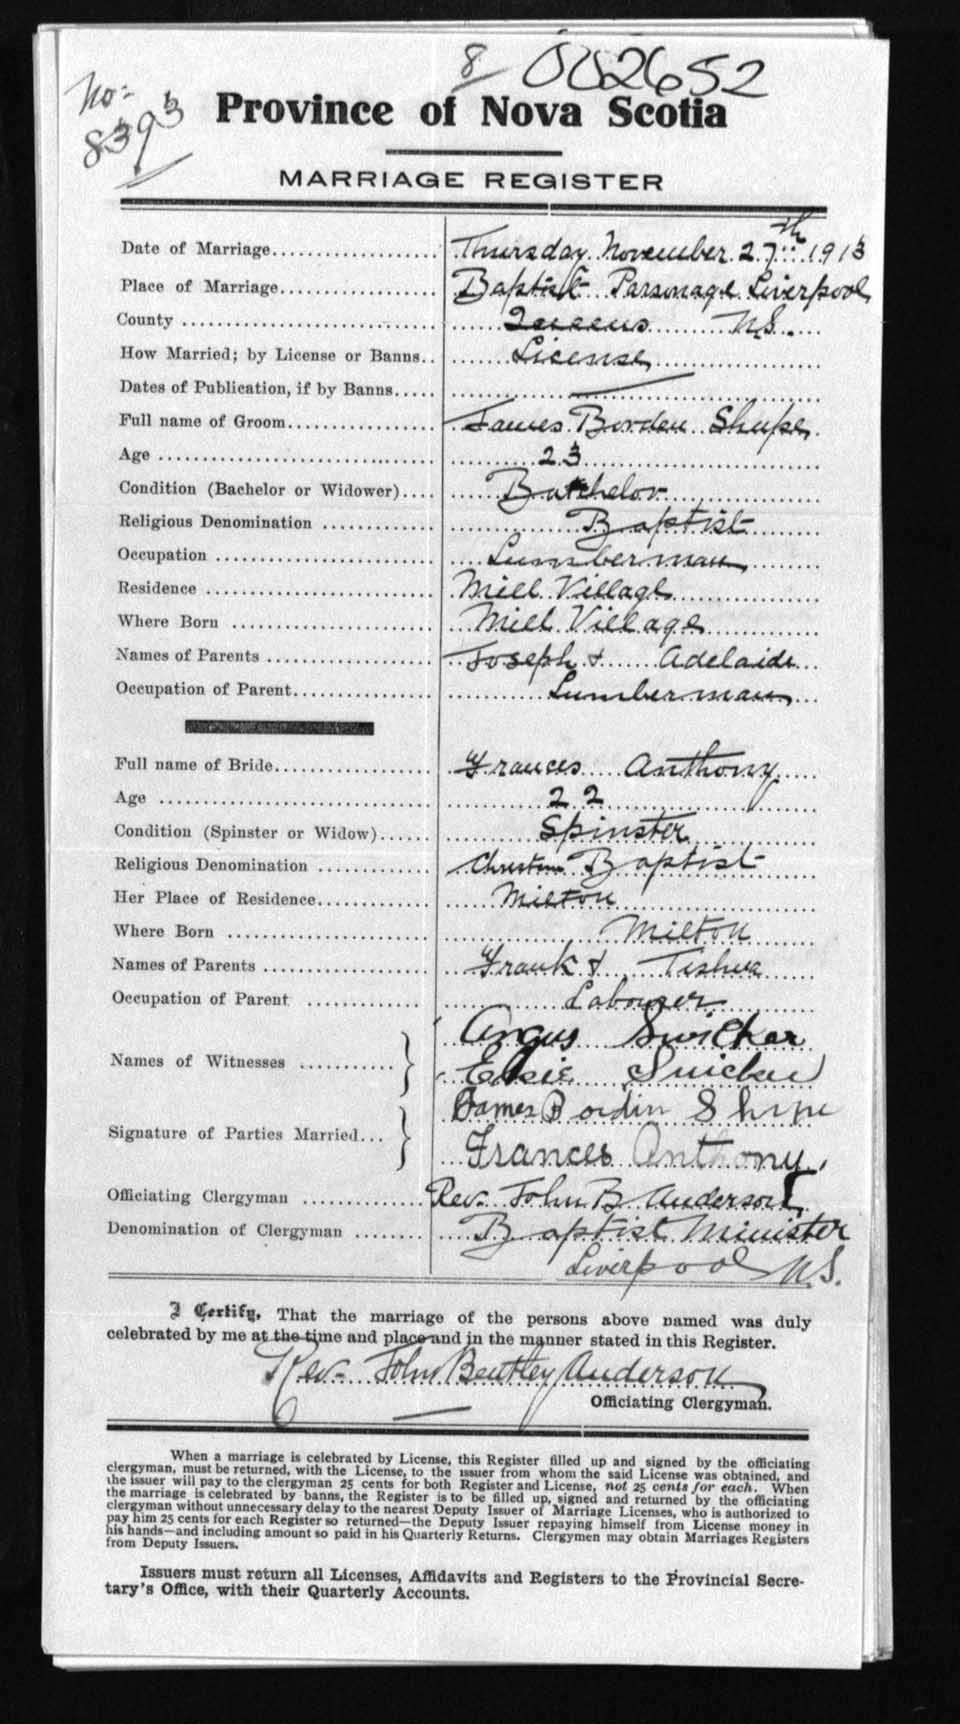 8 002652
No:
8393
Province of Nova Scotia
MARRIAGE REGISTER
Date of Marriage.................. Thursday November 27th 1913
Place of Marriage.................. Baptist Parsonage Liverpool
County .................. Queens N.S.
How Married; by License or Banns.. License
Dates of Publication, if by Banns..... —
Full name of Groom.................. James Borden Shupe
Age .................. 23
Condition (Bachelor or Widower).... Batchelor
Religious Denomination .............. Baptist
Occupation .................. Lumberman
Residence .................. Mill Village
Where Born .................. Mill Village
Names of Parents .................. Joseph & Adelaide
Occupation of Parent.................. Lumberman
Full name of Bride.................. Frances Anthony
Age .................. 22
Condition (Spinster or Widow)...... Spinster
Religious Denomination .............. Baptist
Her Place of Residence.............. Milton
Where Born .................. Milton
Names of Parents .................. Frank &
Occupation of Parent .............. Labourer
Names of Witnesses ............ Angus Swicker
Elsie
Signature of Parties Married... James Bordin Shupe
Frances Anthony
Officiating Clergyman .............. Rev. John B Anderson
Denomination of Clergyman ........ Baptist Minister
Liverpool N.S.
I Certify, That the marriage of the persons above named was duly
celebrated by me at the time and place and in the manner stated in this Register.
Rev. John Bentley Anderson
Officiating Clergyman.
When a marriage is celebrated by License, this Register filled up and signed by the officiating
clergyman, must be returned, with the License, to the issuer from whom the said License was obtained, and
the issuer will pay to the clergyman 25 cents for both Register and License, not 25 cents for each. When
the marriage is celebrated by banns, the Register is to be filled up, signed and returned by the officiating
clergyman without unnecessary delay to the nearest Deputy Issuer of Marriage Licenses, who is authorized to
pay him 25 cents for each Register so returned—the Deputy Issuer repaying himself from License money in
his hands—and including amount so paid in his Quarterly Returns. Clergymen may obtain Marriages Registers
from Deputy Issuers.
Issuers must return all Licenses, Affidavits and Registers to the Provincial Secre-
tary's Office, with their Quarterly Accounts.